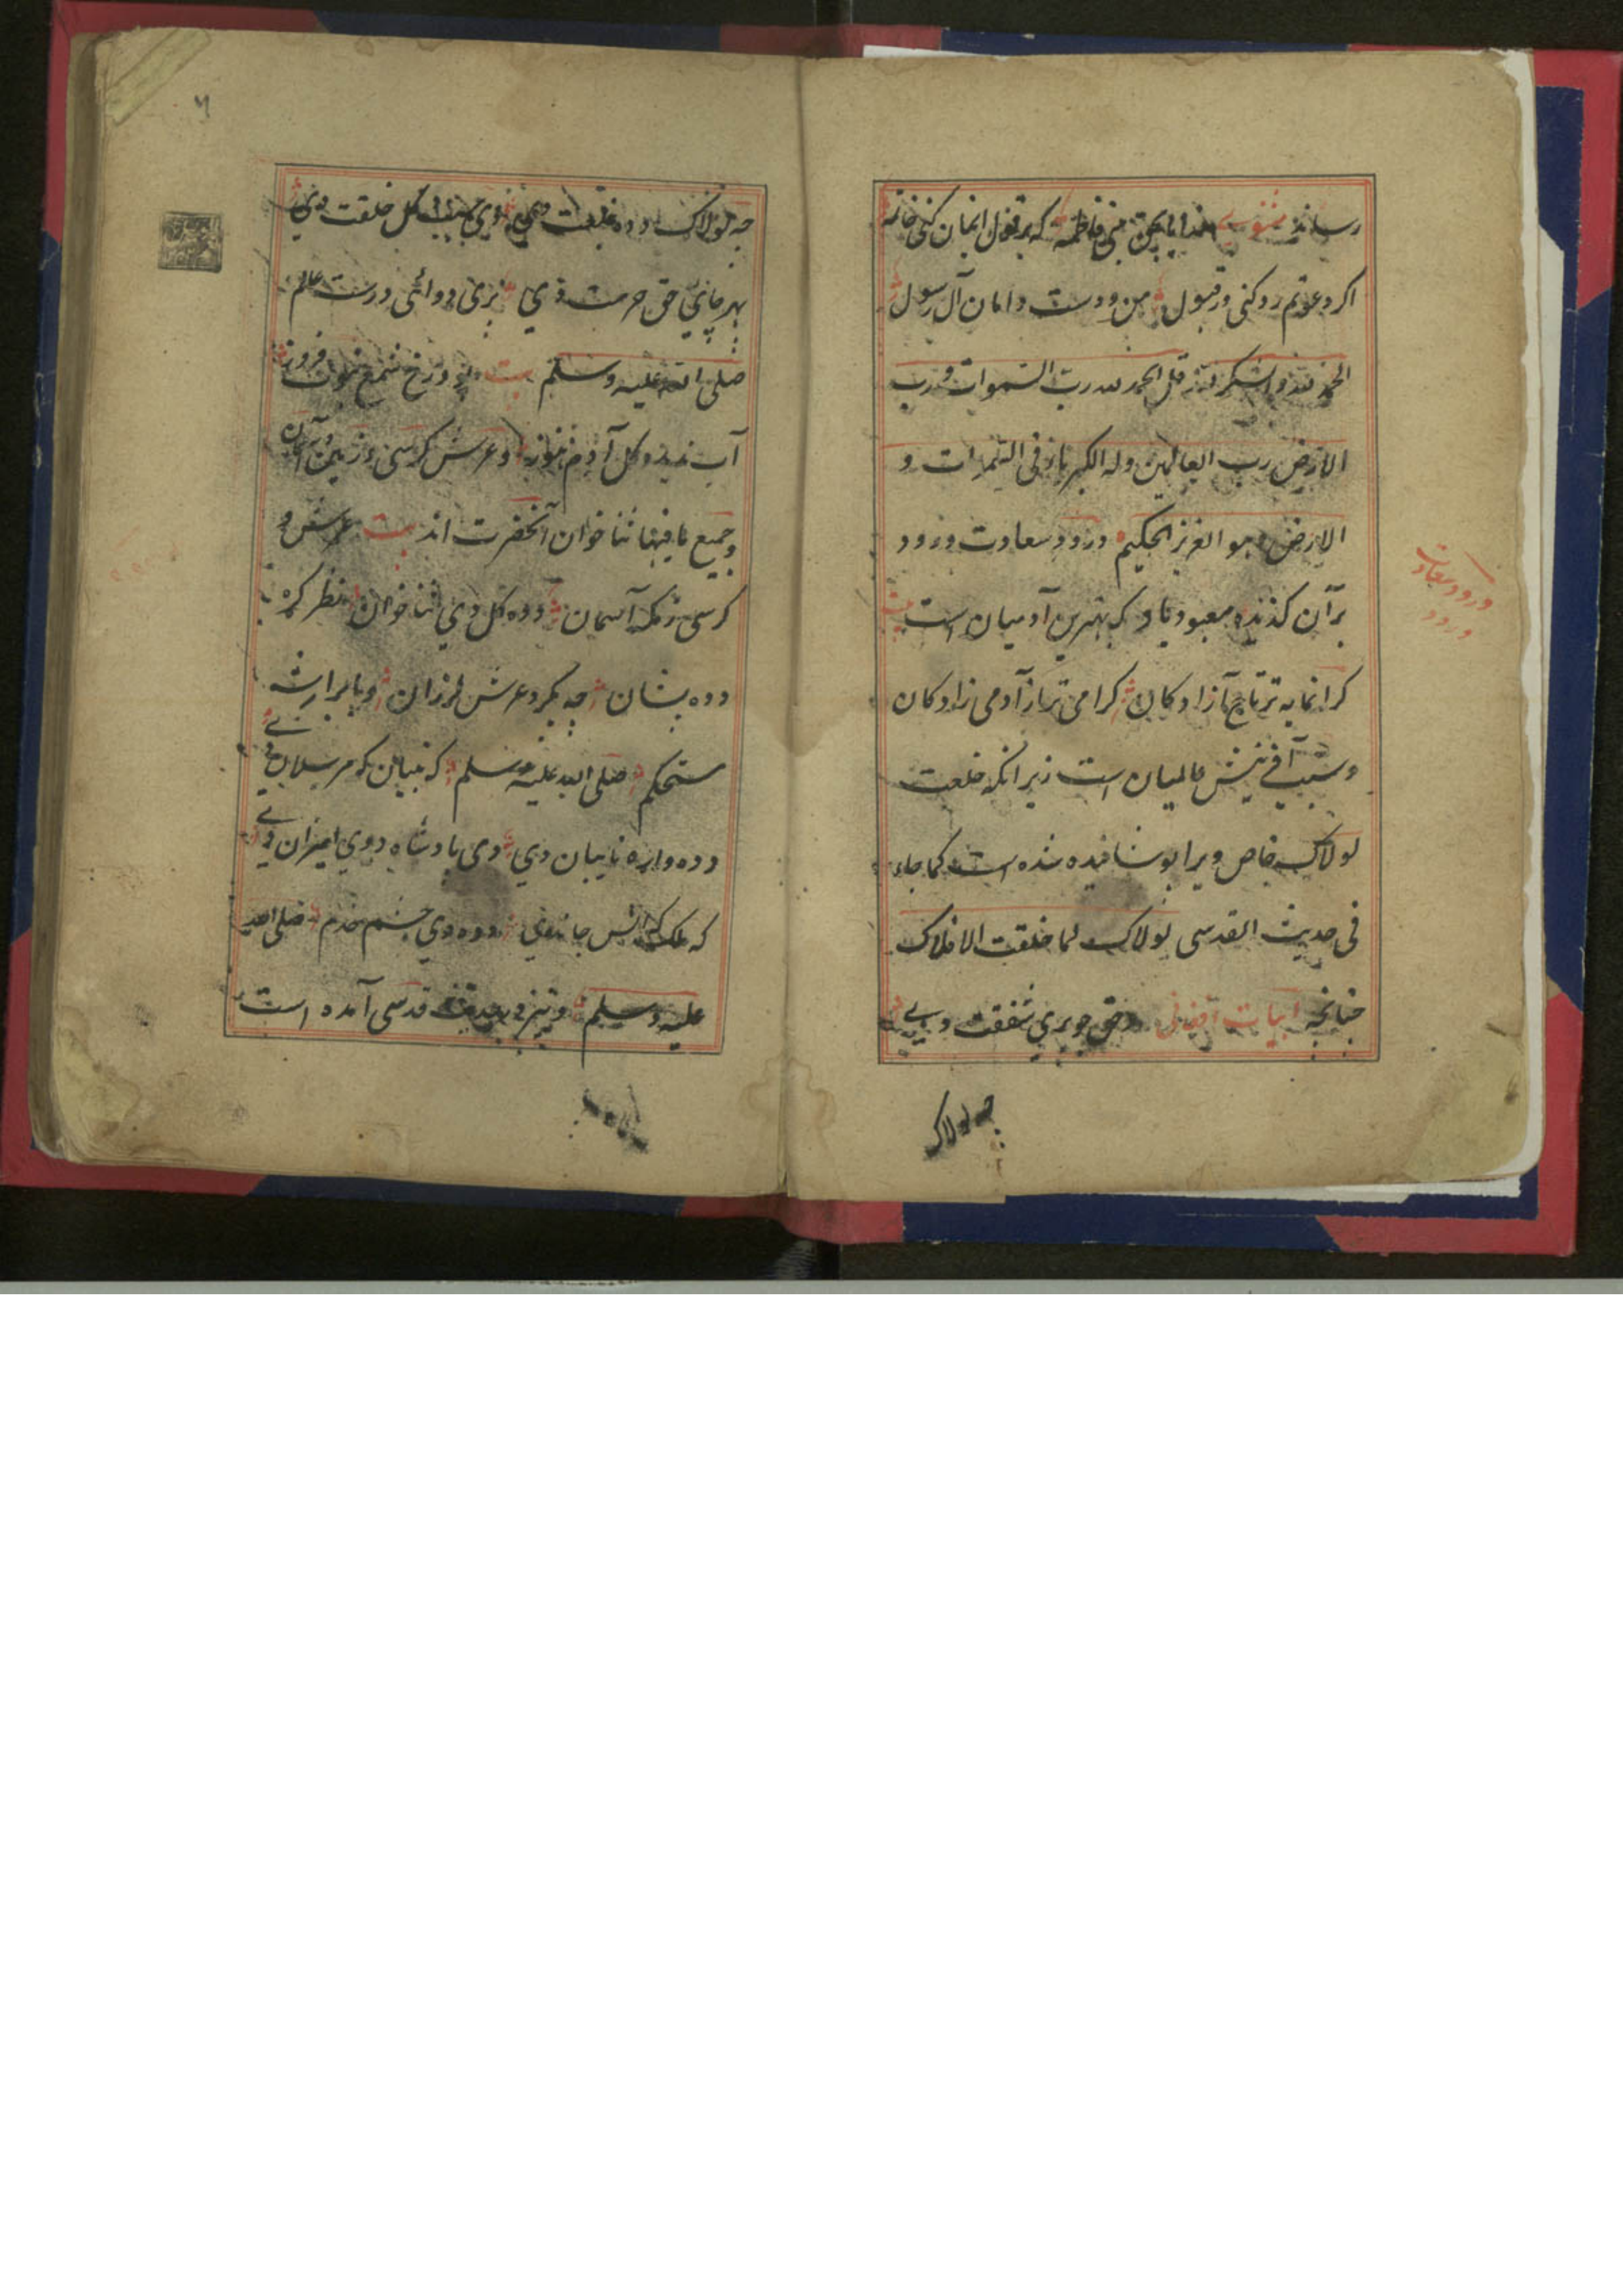 رساند مثنوی خدایا بحق بنی فاطمه که بر قول ایمان کنی خاتمه
اکر دعوتم رد کنی ور قبول من و دست و دامان آل رسول
الحمد لله والشکر لله قل الحمد لله رب السموات و رب
الارض رب العالمین وله الکبریاء فی السموات و
الارض وهو العزیز الحکیم درود سعادت ورود
بر آن کزیده معبود باد که بهترین آدمیان است بیت
کرانمایه تر تاج آزادکان کرامی تر از آدمی زادکان
و سبب آفرینش عالمیان است زیرا نکه خلعت
لولاک خاص ویرا پوشانیده شده است کما جاء
فی حدیث القدسی لولاک لما خلقت الافلاک
چنانچه ابیات افغانی حق جوبری شفقت دی
چه لولاک
درود سعادت
ورود
چه لولاک دده خلعت دی سبب کل خلقت دی
بهر جای حق حرمت دی بری درست عالم
صلی الله علیه وسلم بیت بود درخ شمع نبوت فروز
آب نبد و کل آدم هنوز و عرش کرسی و زمین و آسمان
و جمیع ما فیها ثنا خوان آنحضرت اند بیت عرش و
کرسی زمکه آسمان دده کل دی ثنا خوان نظر کره
دده بشان چه بکرد عرش لرزان
مستحکم صلی الله علیه وسلم که نبیان که مرسلان دی
دده واره نایبان دی دی بادشاه دوی امیران دی
که ملک انس جان دی دده دی حشم خدم صلی الله
علیه وسلم و نیز در حدیث قدسی آمده است